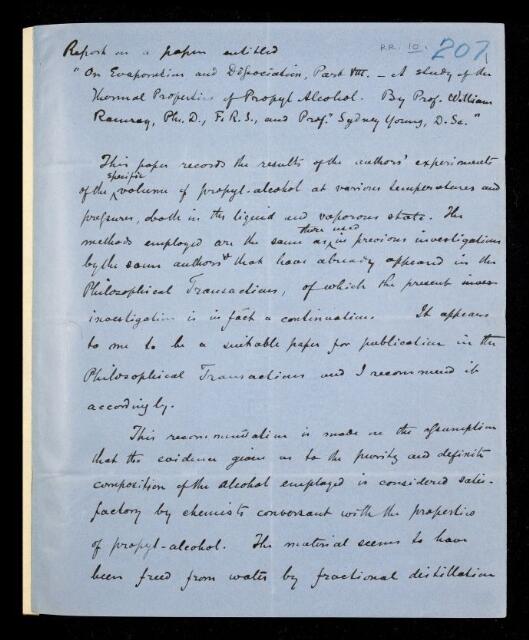 RR. 10. 207
Report on a paper entitled
"On Evaporation and Dissociation, Part VIII. — A study of the
Thermal Properties of Propyl Alcohol. By Prof. William
Ramsay, Ph.D., F.R.S., and Prof. Sydney Young, D.Sc."
This paper records the results of the authors' experiments
of the specific volume of propyl-alcohol at various temperatures and
pressures, both in the liquid and vaporous state. The
methods employed are the same as those used in previous investigations
by the same authors that have already appeared in the
Philosophical Transactions, of which the present inves-
investigation is in fact a continuation. It appears
to me to be a suitable paper for publication in the
Philosophical Transactions and I recommend it
accordingly.
This recommendation is made on the assumption
that the evidence given as to the purity and definite
composition of the alcohol employed is considered satis-
factory by chemists conversant with the properties
of propyl-alcohol. The material seems to have
been freed from water by fractional distillation